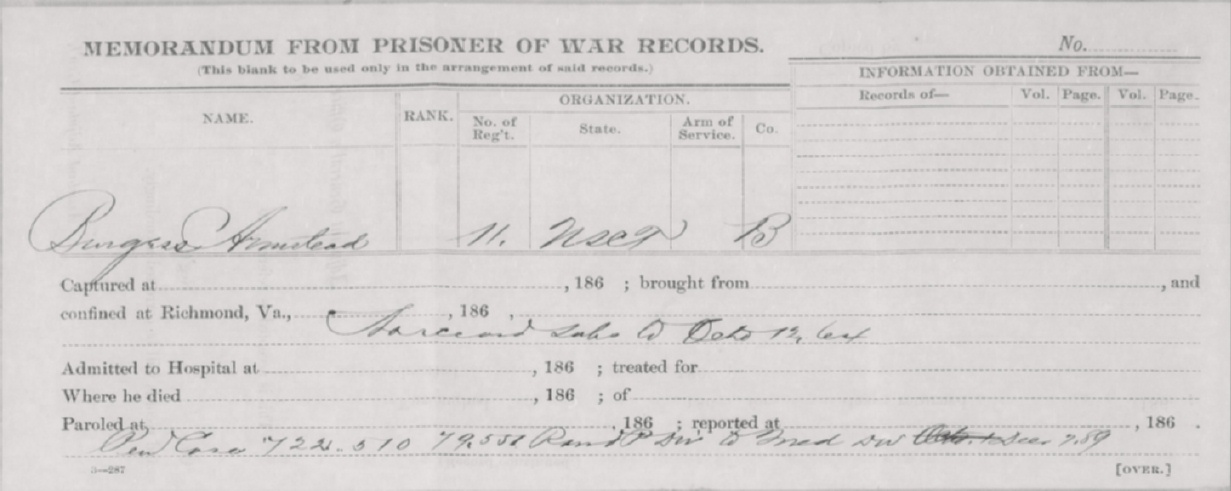 MEMORANDUM FROM PRISONER OF WAR RECORDS.
No.
(This blank to be used only in the arrangement of said records.)
INFORMATION OBTAINED FROM—
NAME. RANK. ORGANIZATION. Records of— Vol. Page. Vol. Page.
No. of Reg't. State. Arm of Service. Co.
Burgess Armstead 11. USCT B
Captured at , 186 ; brought from , and
confined at Richmond, Va., , 186 ,
No record Octo 12, 64
Admitted to Hospital at , 186 ; treated for
Where he died , 186 ; of
Paroled at , 186 ; reported at , 186 .
Pen Case 722.510 79,551 Div to Med Div 7.89
3—287
[OVER.]